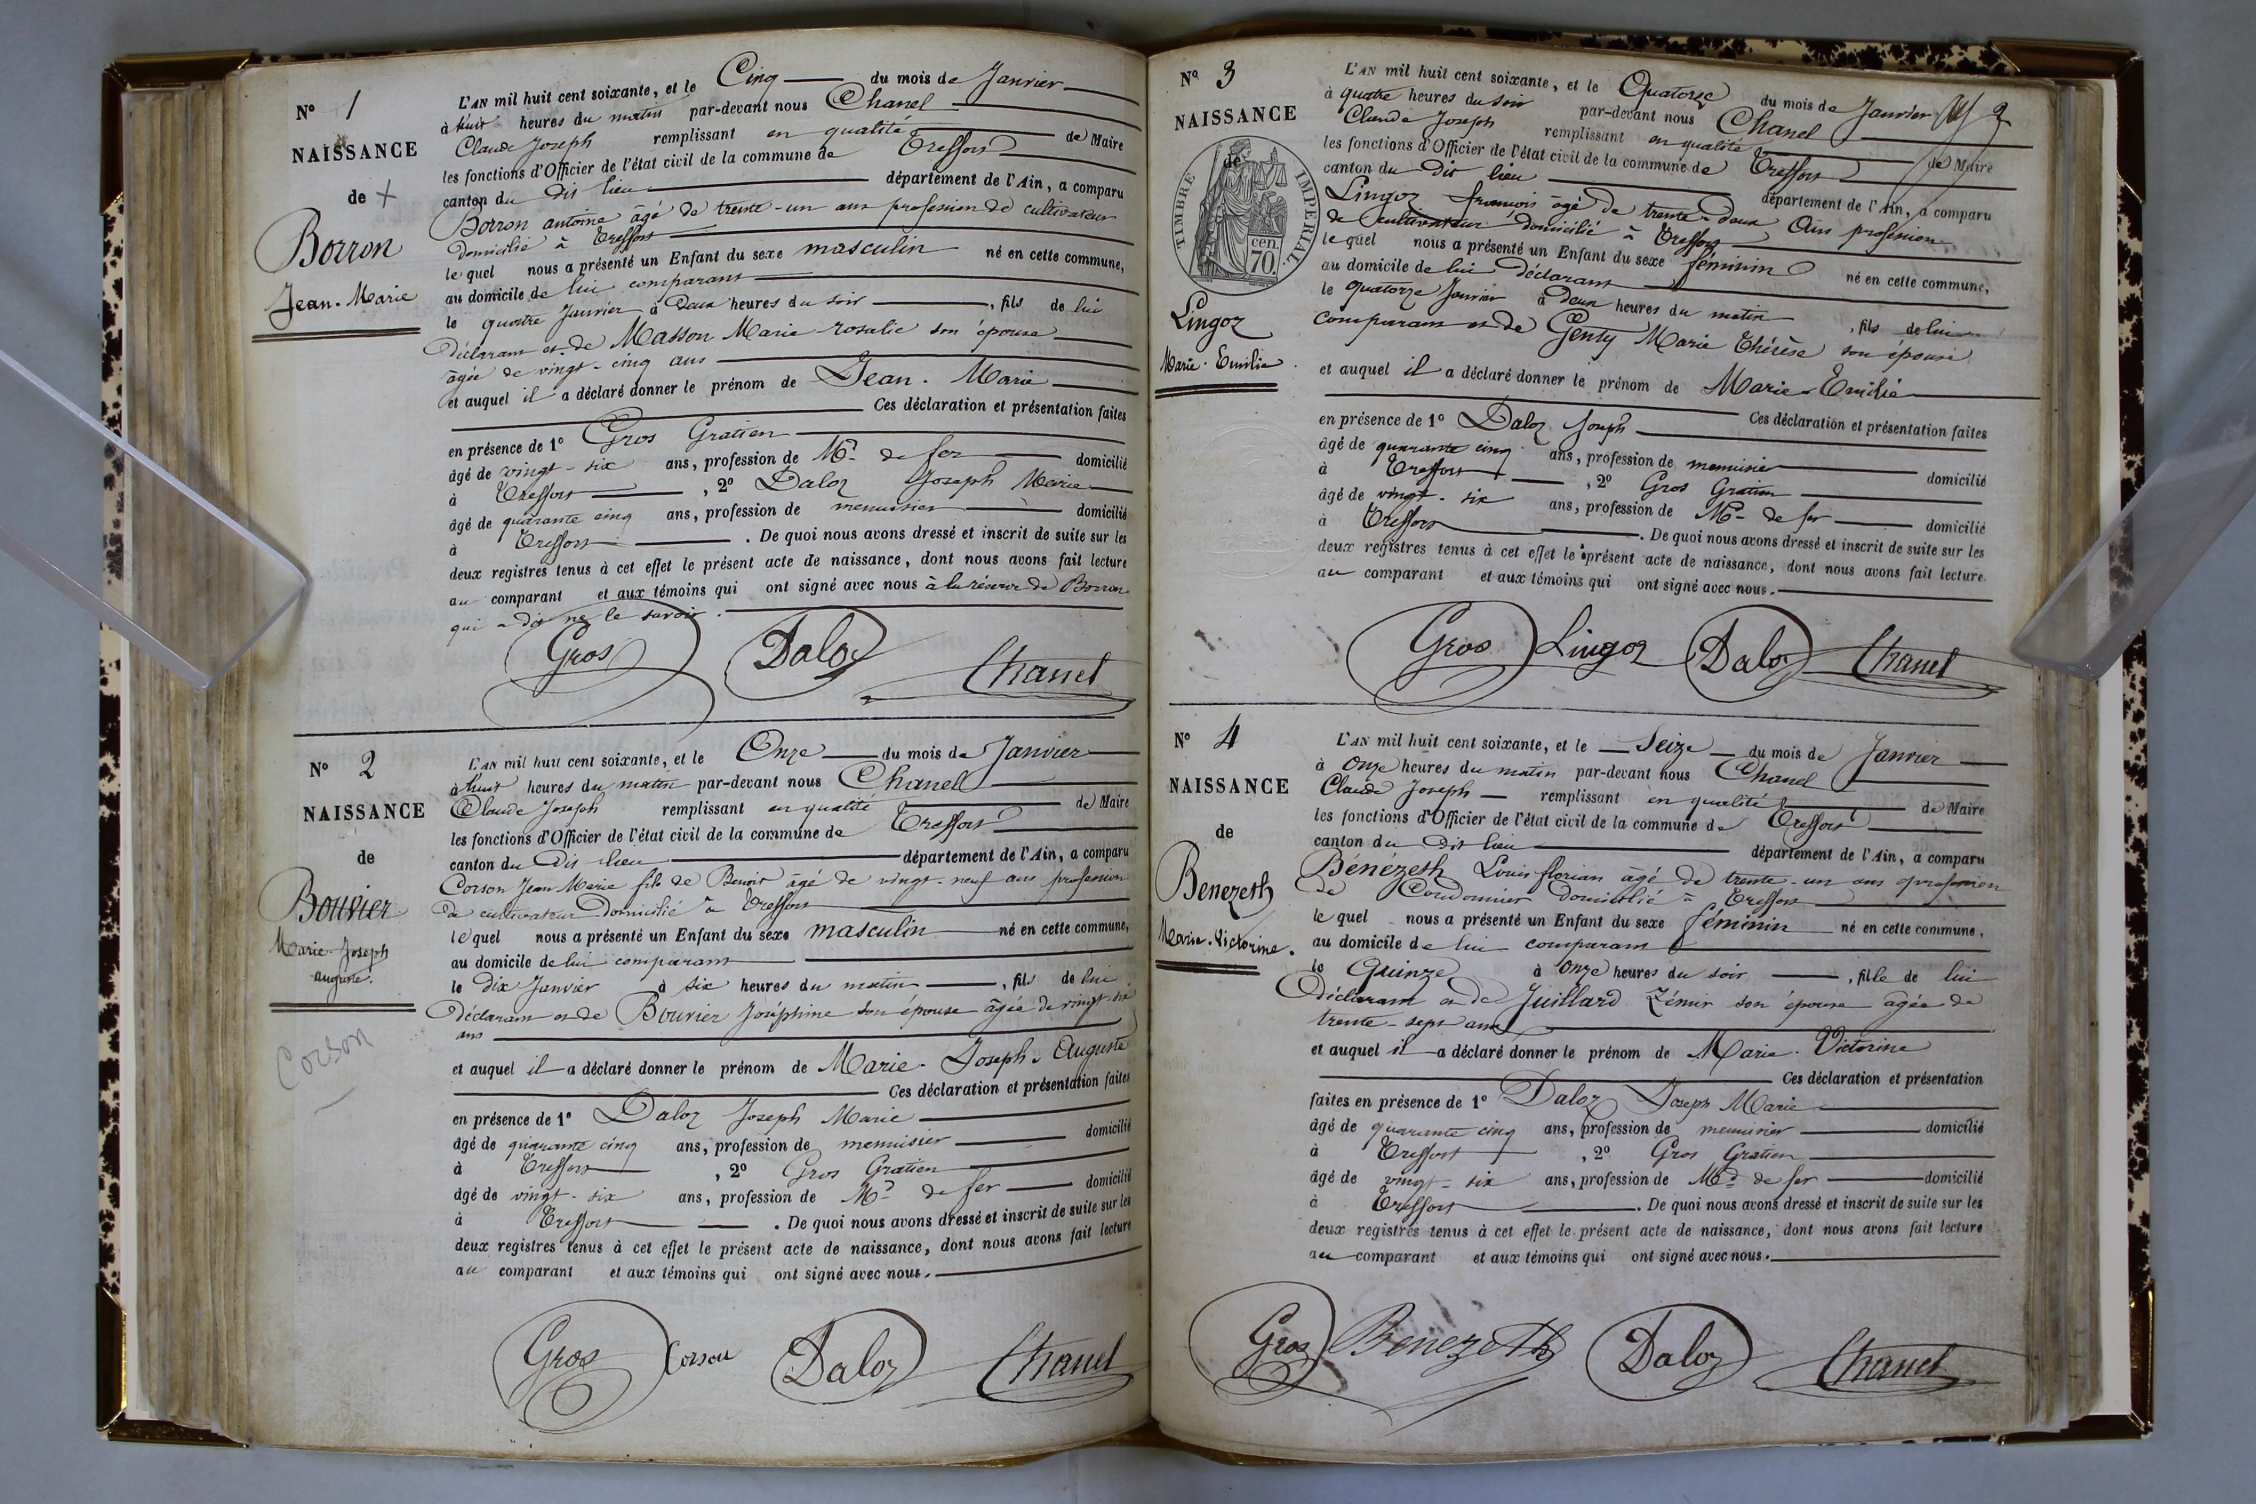 N° 1
NAISSANCE
de +
Borron
Jean-Marie
L'AN mil huit cent soixante, et le Cinq du mois de Janvier
à huit heures du matin par-devant nous Chanel
Claude Joseph remplissant en qualité de Maire
les fonctions d'Officier de l'état civil de la commune de Treffort
canton du dit lieu département de l'Ain, a comparu
Borron antoine âgé de trente-un ans profession de cultivateur
domicilié à Treffort
lequel nous a présenté un Enfant du sexe masculin né en cette commune,
au domicile de lui comparant
le quatre Janvier à Deux heures du soir, fils de lui
Déclarant et de Masson Marie rosalie son épouse
âgée de vingt-cinq ans
et auquel il a déclaré donner le prénom de Jean-Marie
Ces déclaration et présentation faites
en présence de 1° Gros Gratien
âgé de vingt-six ans, profession de Md de fer domicilié
à Treffort, 2° Daloz Joseph Marie
âgé de quarante cinq ans, profession de menuisier domicilié
à Treffort. De quoi nous avons dressé et inscrit de suite sur les
deux registres tenus à cet effet le présent acte de naissance, dont nous avons fait lecture
au comparant et aux témoins qui ont signé avec nous à la réserve de Borron
qui a dit ne le savoir.
Gros Daloz Chanel
N° 2
NAISSANCE
de
Bouvier
Marie-Joseph
auguste.
Corson
L'AN mil huit cent soixante, et le Onze du mois de Janvier
à huit heures du matin par-devant nous Chanel
Claude Joseph remplissant en qualité de Maire
les fonctions d'Officier de l'état civil de la commune de Treffort
canton du Dit lieu département de l'Ain, a comparu
Corson Jean Marie fils de Benoit âgé de vingt-neuf ans profession
de cultivateur Domicilié à Treffort
lequel nous a présenté un Enfant du sexe masculin né en cette commune,
au domicile de lui comparant
le dix Janvier à six heures du matin, fils de lui
Déclarant et de Bouvier Joséphine son épouse âgée de vingt-six
ans
et auquel il a déclaré donner le prénom de Marie-Joseph-Auguste
Ces déclaration et présentation faites
en présence de 1° Daloz Joseph Marie
âgé de quarante cinq ans, profession de menuisier domicilié
à Treffort, 2° Gros Gratien
âgé de vingt-six ans, profession de Md de fer domicilié
à Treffort. De quoi nous avons dressé et inscrit de suite sur les
deux registres tenus à cet effet le présent acte de naissance, dont nous avons fait lecture
au comparant et aux témoins qui ont signé avec nous.
Gros Corson Daloz Chanel
N° 3
NAISSANCE
de
TIMBRE IMPERIAL.
cen.
70
Lingoz
Marie-Emilie
L'AN mil huit cent soixante, et le Quatorze du mois de Janvier
à quatre heures du soir par-devant nous Chanel
Claude Joseph remplissant en qualité de Maire
les fonctions d'Officier de l'état civil de la commune de Treffort
canton du Dit lieu département de l'Ain, a comparu
Lingoz francois âgé de trente-deux Ans profession
de cultivateur domicilié à Treffort
lequel nous a présenté un Enfant du sexe féminin né en cette commune,
au domicile de lui Déclarant
le quatorze Janvier à Deux heures du matin, fils de lui
comparant et de Genty Marie Thérèse son épouse
et auquel il a déclaré donner le prénom de Marie-Emilie
Ces déclaration et présentation faites
en présence de 1° Daloz Joseph
âgé de quarante cinq ans, profession de menuisier domicilié
à Treffort, 2° Gros Gratien
âgé de vingt-six ans, profession de Md de fer domicilié
à Treffort. De quoi nous avons dressé et inscrit de suite sur les
deux registres tenus à cet effet le présent acte de naissance, dont nous avons fait lecture
au comparant et aux témoins qui ont signé avec nous.
Gros Lingoz Daloz Chanel
N° 4
NAISSANCE
de
Benezeth
Marie-Victorine.
L'AN mil huit cent soixante, et le Seize du mois de Janvier
à Onze heures du matin par-devant nous Chanel
Claude Joseph remplissant en qualité de Maire
les fonctions d'Officier de l'état civil de la commune de Treffort
canton du dit lieu département de l'Ain, a comparu
Bénézeth Louis florian âgé de trente-un ans profession
de Cordonnier domicilié à Treffort
lequel nous a présenté un Enfant du sexe féminin né en cette commune,
au domicile de lui comparant
le Quinze à Onze heures du soir, fille de lui
Déclarant et de Juillard Zémir son épouse agée de
trente-sept ans
et auquel il a déclaré donner le prénom de Marie-Victorine
Ces déclaration et présentation
faites en présence de 1° Daloz Joseph Marie
âgé de quarante cinq ans, profession de menuisier domicilié
à Treffort, 2° Gros Gratien
âgé de vingt-six ans, profession de Md de fer domicilié
à Treffort. De quoi nous avons dressé et inscrit de suite sur les
deux registres tenus à cet effet le présent acte de naissance, dont nous avons fait lecture
au comparant et aux témoins qui ont signé avec nous.
Gros Benezeth Daloz Chanel